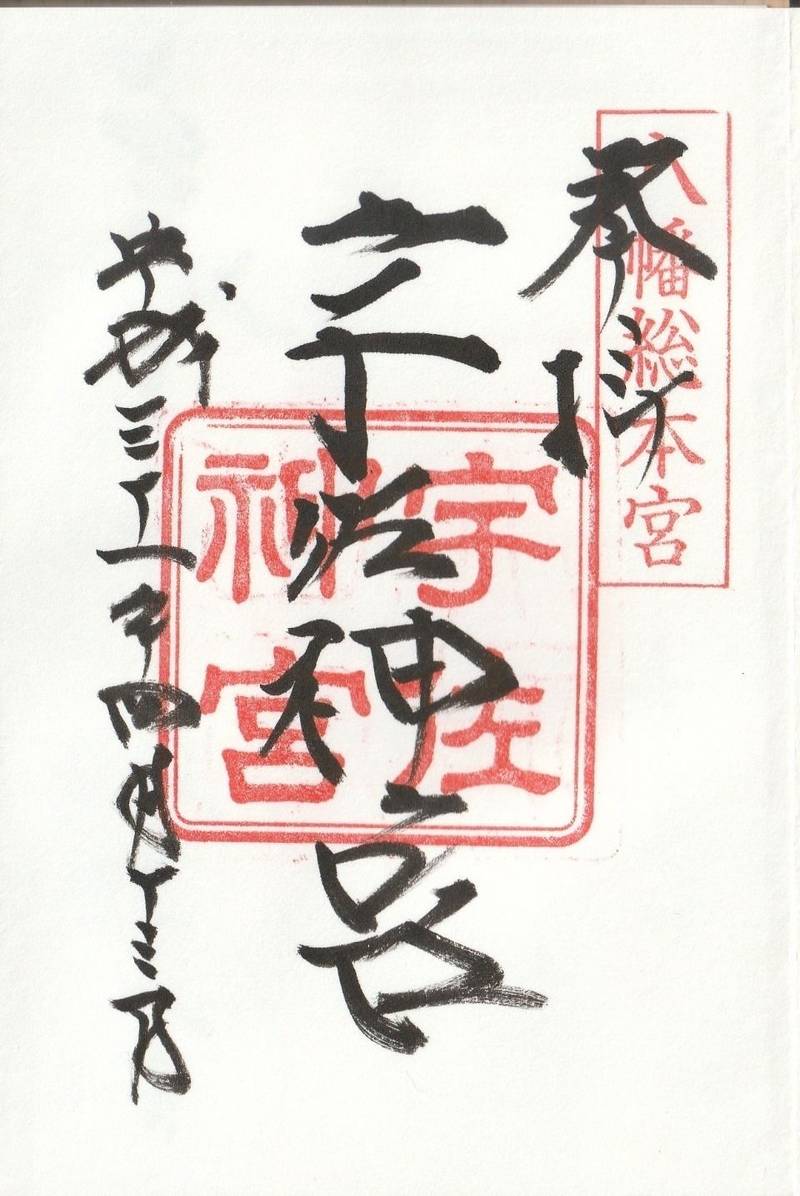 八幡総本宮
奉拝
宇佐神宮
宇佐
神宮
平成三十一年四月十三日